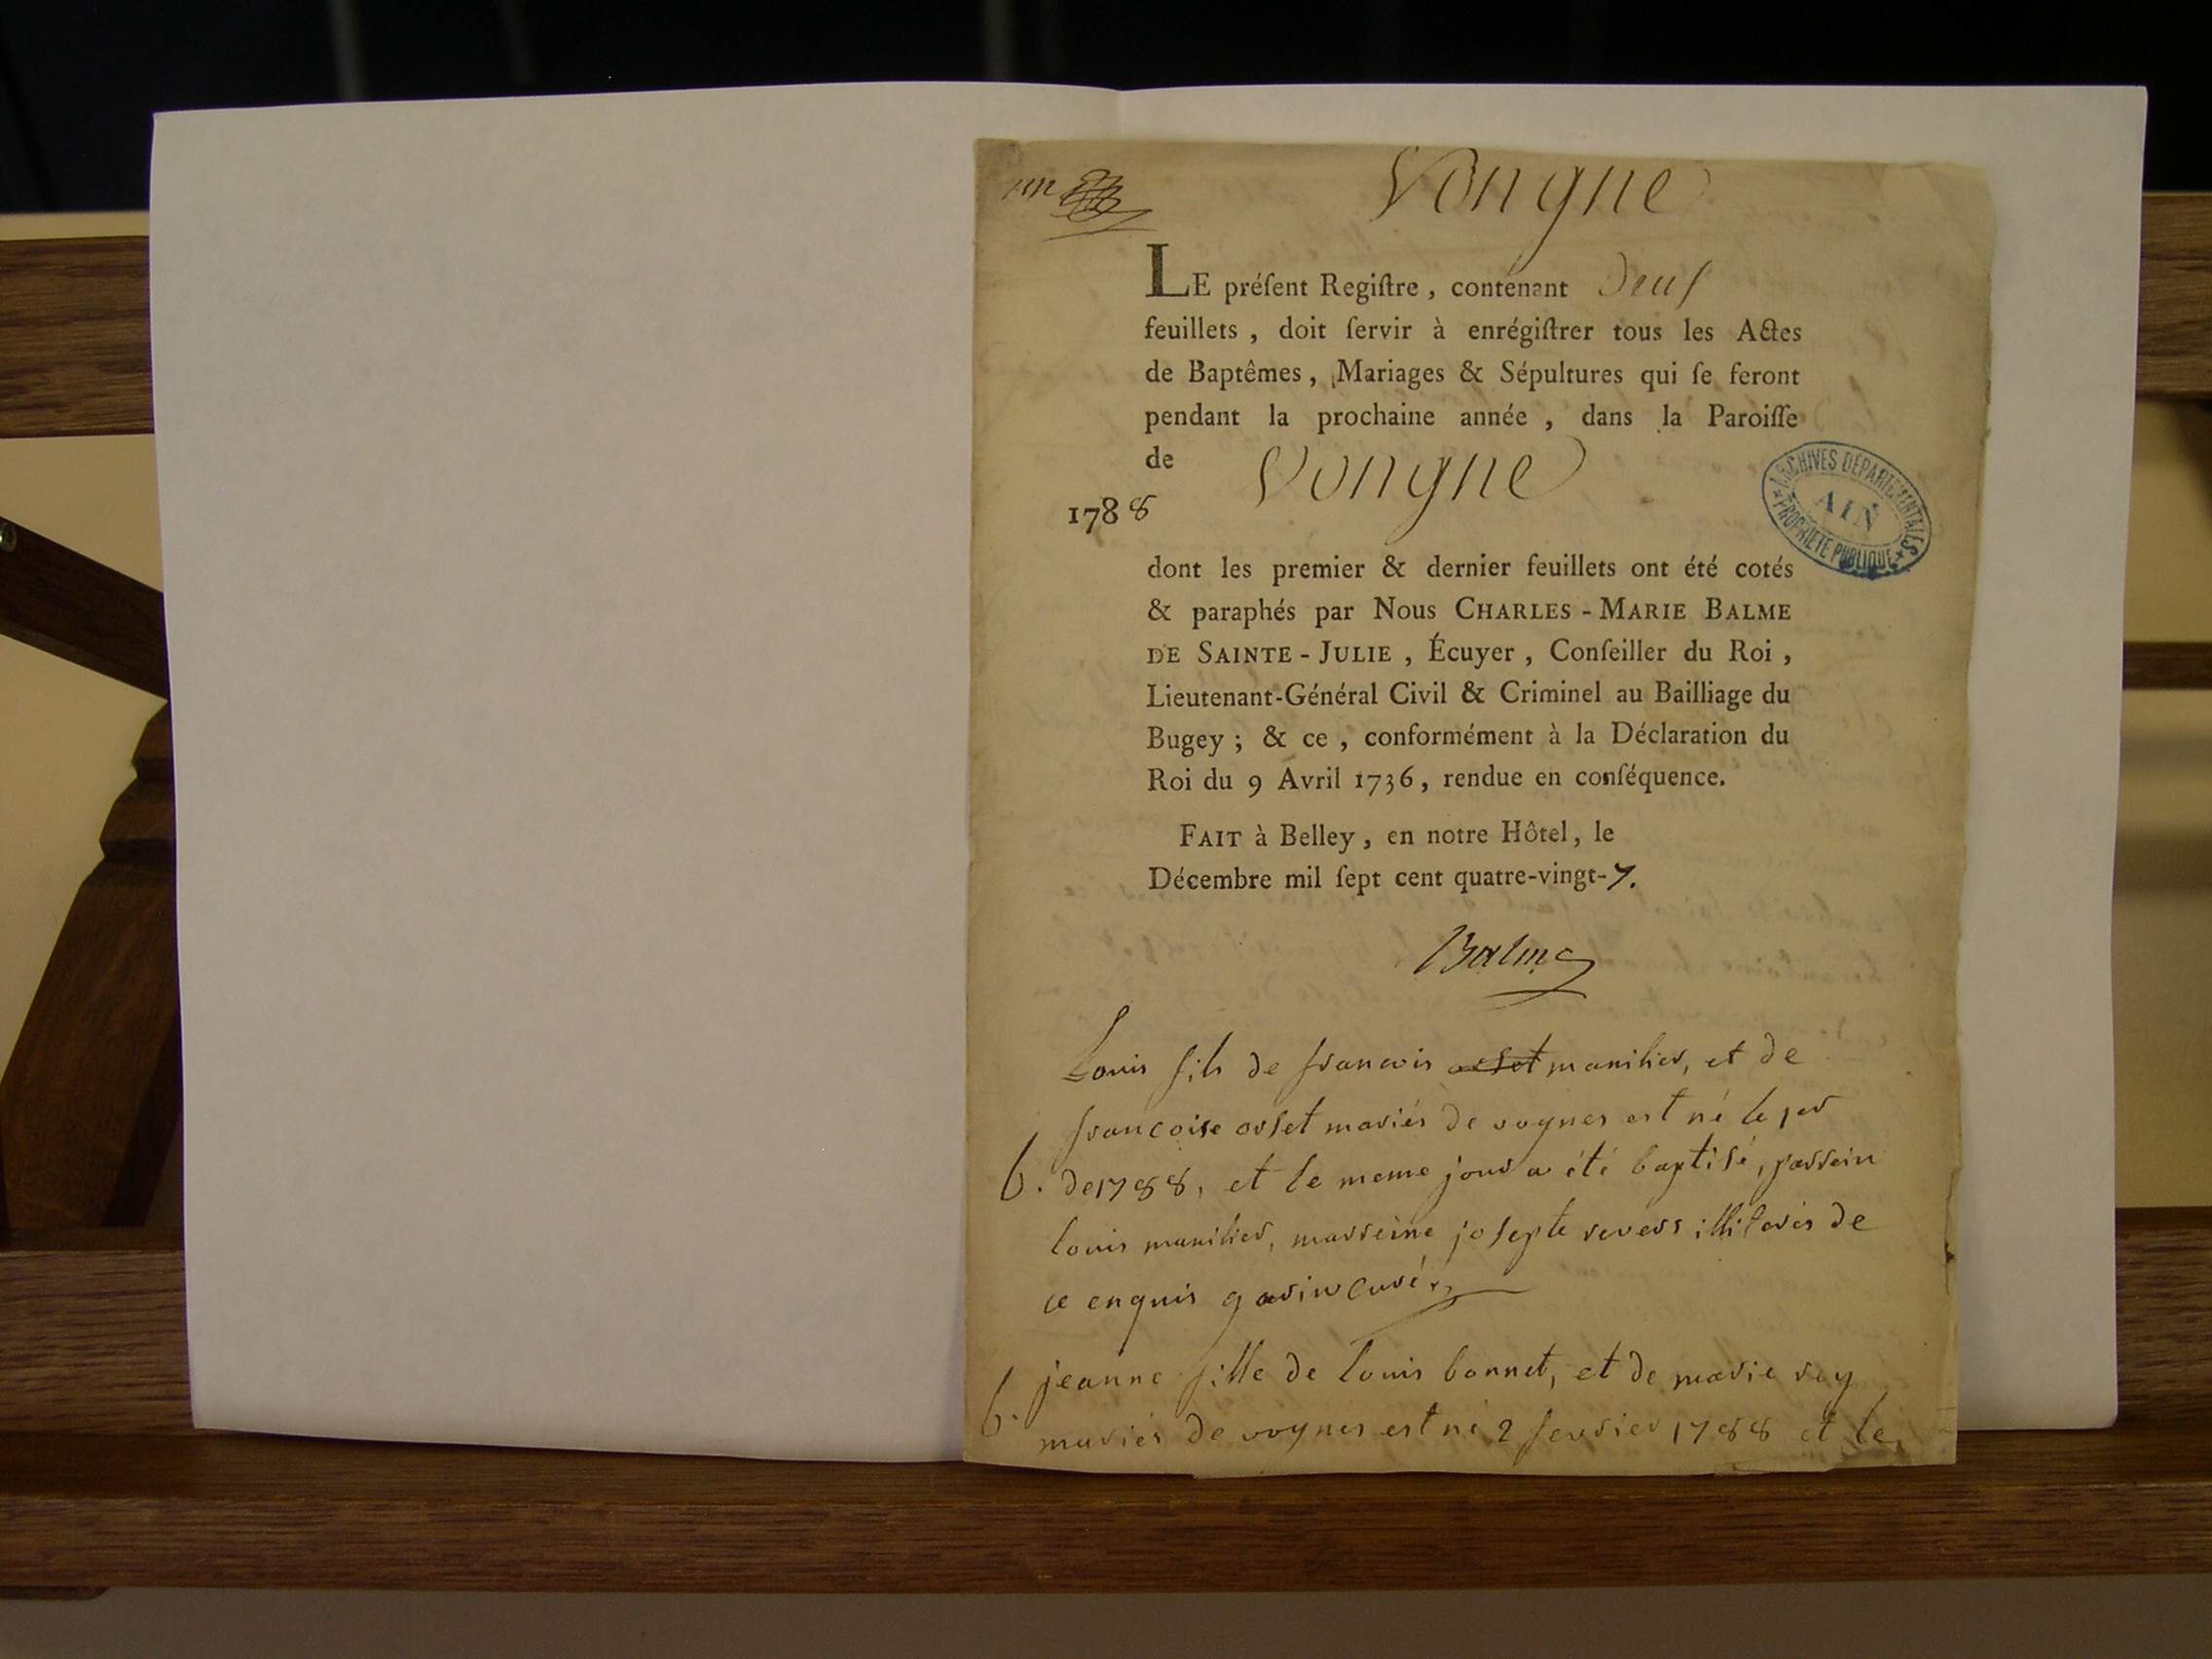 Vongne
un
LE préſent Regiſtre, contenant Deux
feuillets, doit ſervir à enrégiſtrer tous les Actes
de Baptêmes, Mariages & Sépultures qui ſe feront
pendant la prochaine année, dans la Paroiſſe
de Vongne
1788
ARCHIVES DÉPARTEMENTALES
AIN
PROPRIÉTÉ PUBLIQUE
dont les premier & dernier feuillets ont été cotés
& paraphés par Nous CHARLES-MARIE BALME
DE SAINTE-JULIE, Écuyer, Conſeiller du Roi,
Lieutenant-Général Civil & Criminel au Bailliage du
Bugey; & ce, conformément à la Déclaration du
Roi du 9 Avril 1736, rendue en conſéquence.
FAIT à Belley, en notre Hôtel, le
Décembre mil ſept cent quatre-vingt-7.
Balme
Louis fils de francois orset manilier, et de
francoise orset mariés de vognes est né le per
b. de 1788, et le meme jour a été baptisé, parrein
louis manilier, marreine josepte revers illiterés de
ce enquis garin curé
b. jeanne fille de louis bonnet, et de marie rey
mariés de vognes est né 2 fevrier 1788 et le